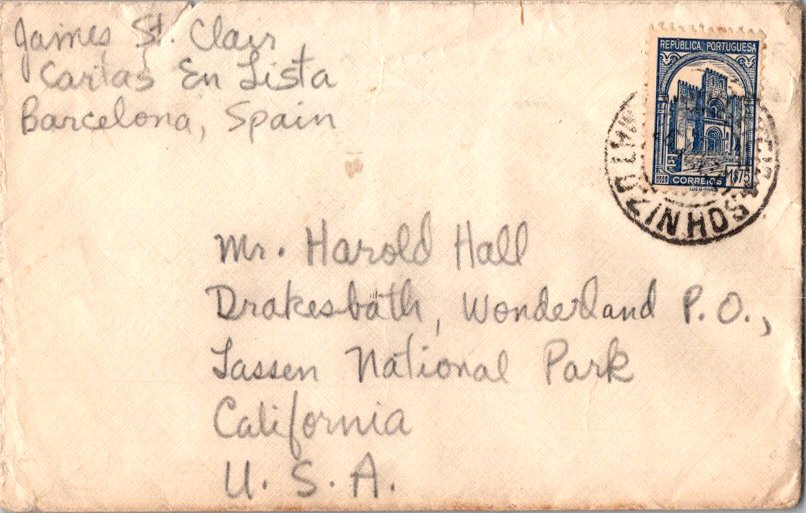 James St. Clair
Cartas En Lista
Barcelona, Spain
REPÚBLICA PORTUGUESA
CORREIOS 1$75
Mr. Harold Hall
Drakesbath, Wonderland P.O.,
Lassen National Park
California
U. S. A.